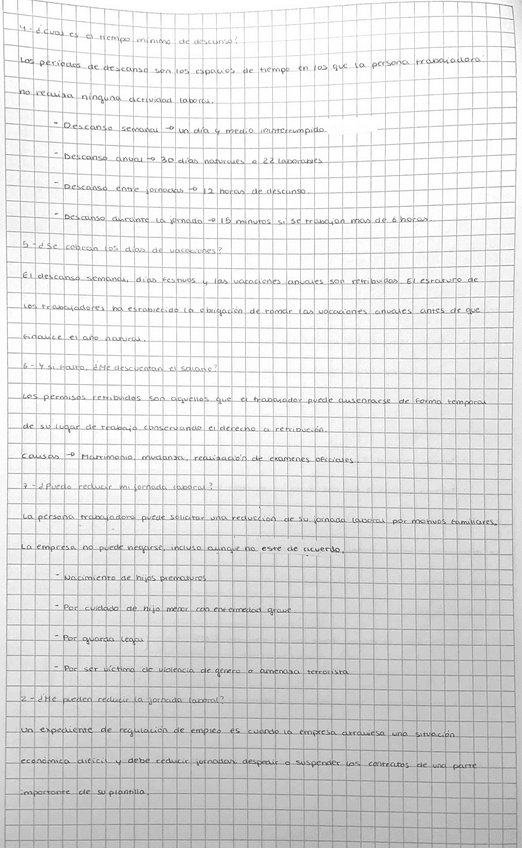 4-¿Cual es el tiempo minimo de descanso?
Los periodos de descanso son los espacios de tiempo en los que la persona trabajadora
no realiza ninguna actividad laboral.
- Descanso semanal → un día y medio ininterrumpido
- Descanso anual → 30 días naturales o 22 laborables
- Descanso entre jornadas → 12 horas de descanso.
- Descanso durante la jornada → 15 minutos si se trabajan mas de 6 horas.
5-¿Se cobran los días de vacaciones?
El descanso semanal, días festivos y las vacaciones anuales son retribuidos. El estatuto de
los trabajadores ha establecido la obligación de tomar las vacaciones anuales antes de que
finalice el año natural.
6-Y si falto, ¿Me descuentan el salario?
Los permisos retribuidos son aquellos que el trabajador puede ausentarse de forma temporal
de su lugar de trabajo conservando el derecho a retribución.
Causas → Matrimonio, mudanza, realización de examenes oficiales.
7-¿Puedo reducir mi jornada laboral?
La persona trabajadora puede solicitar una reduccion de su jornada laboral por motivos familiares.
La empresa no puede negarse, incluso aunque no este de acuerdo.
- Nacimiento de hijos prematuros
- Por cuidado de hijo menor con enfermedad grave
- Por guarda legal
- Por ser víctima de violencia de género o amenaza terrorista
2-¿Me pueden reducir la jornada laboral?
Un expediente de regulación de empleo es cuando la empresa atraviesa una situación
económica difícil y debe reducir jornadas, despedir o suspender los contratos de una parte
importante de su plantilla.